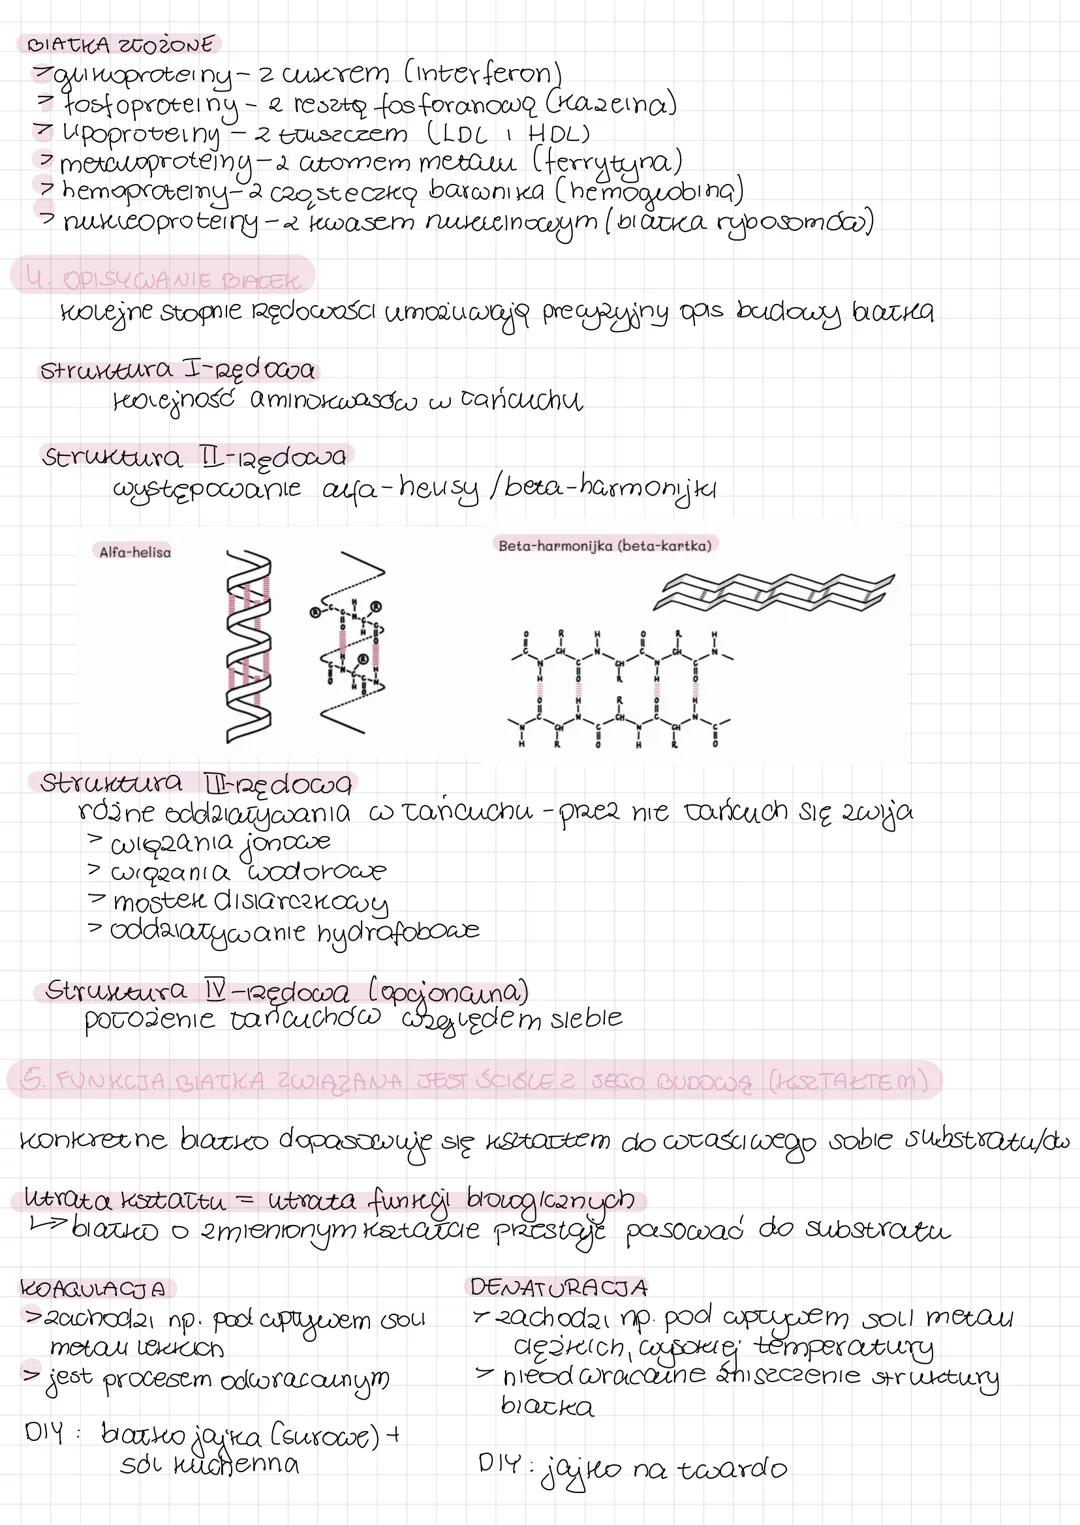 BIAŁKA ZŁOŻONE
> glikoproteiny - z cukrem (interferon)
> fosfoproteiny - z resztą fosforanową (kazeina)
> lipoproteiny - z tłuszczem (LDL i HDL)
> metaloproteiny - z atomem metalu (ferrytyna)
> hemoproteiny - z cząsteczką barwnika (hemoglobina)
> nukleoproteiny - z kwasem nukleinowym (białka rybosomów)
4. OPISYWANIE BIAŁEK
kolejne stopnie rzędowości umożliwiają precyzyjny opis budowy białka
Struktura I-rzędowa
kolejność aminokwasów w łańcuchu
Struktura II-rzędowa
występowanie alfa-helisy /beta-harmonijki
Alfa-helisa
Beta-harmonijka (beta-kartka)
Struktura III-rzędowa
różne oddziaływania w łańcuchu - przez nie łańcuch się zwija
> wiązania jonowe
> wiązania wodorowe
> mostek disiarczkowy
> oddziaływanie hydrofobowe
Struktura IV-rzędowa (opcjonalna)
położenie łańcuchów względem siebie
5. FUNKCJA BIAŁKA ZWIĄZANA JEST ŚCIŚLE Z JEGO BUDOWĄ (KSZTAŁTEM)
konkretne białko dopasowuje się kształtem do właściwego sobie substratu/ów
Utrata kształtu = utrata funkcji biologicznych
↳ białko o zmienionym kształcie przestaje pasować do substratu
KOAGULACJA
> zachodzi np. pod wpływem soli
metali lekkich
> jest procesem odwracalnym
DIY: białko jajka (surowe) +
sól kuchenna
DENATURACJA
> zachodzi np. pod wpływem soli metali
ciężkich, wysokiej temperatury
> nieodwracalne zniszczenie struktury
białka
DIY: jajko na twardo